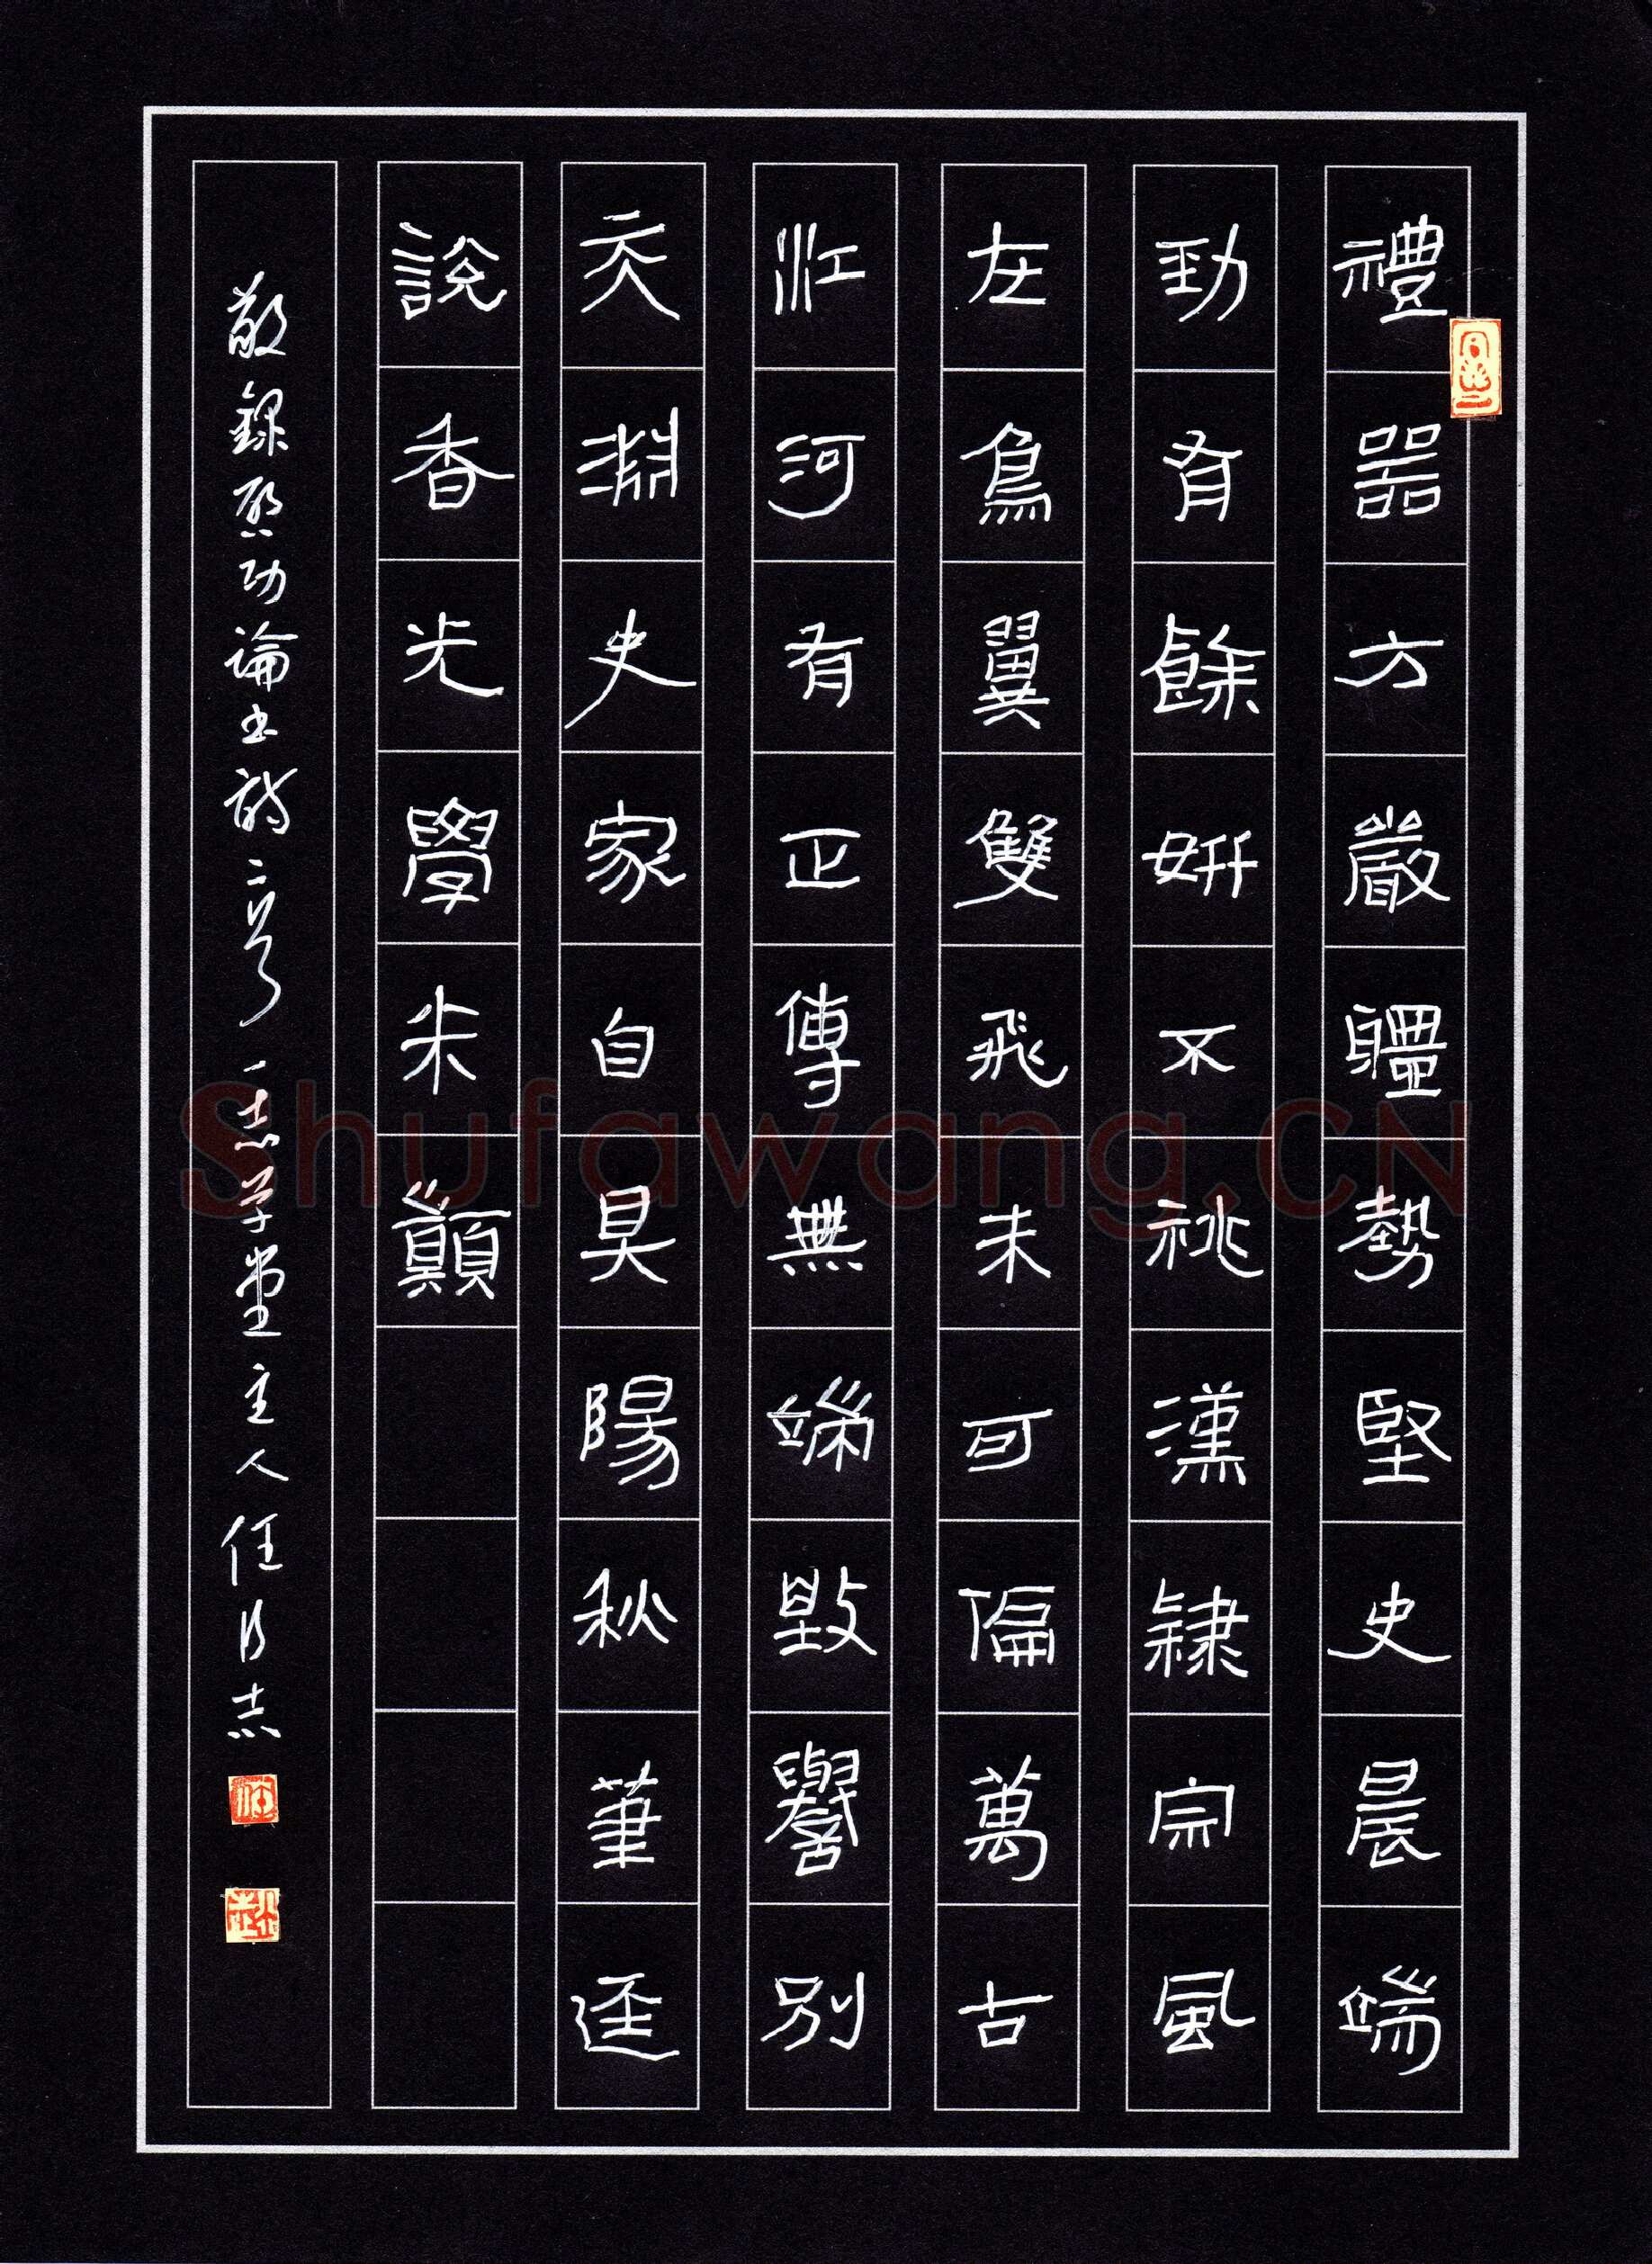 禮器方嚴體勢堅史晨端
勁有餘妍不祧漢隸宗風
在鳥翼雙飛未可偏萬古
江河有正傳無端毀譽別
天淵史家自具陽秋筆逕
說香光學米巔
敬録啟功論書詩二首 志学堂主人任志
Shufawang.CN